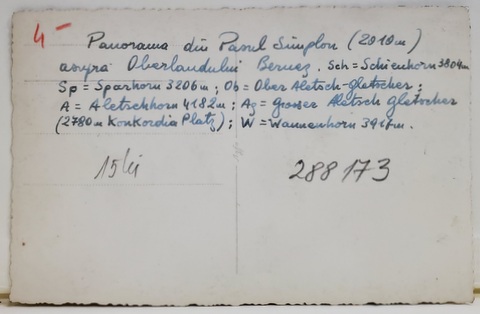 4 -
Panorama din Pasul Simplon (2010m)
asupra Oberlandului Bernez. Sch = Schienhorn 3804m
Sp = Sparhorn 3206m; Ob = Ober Aletsch-gletscher;
A = Aletschhorn 4182m; Ag = Grosser Aletsch Gletscher
(2780m Konkordia Platz); W = Wannenhorn 3917m.
15 lei
288173